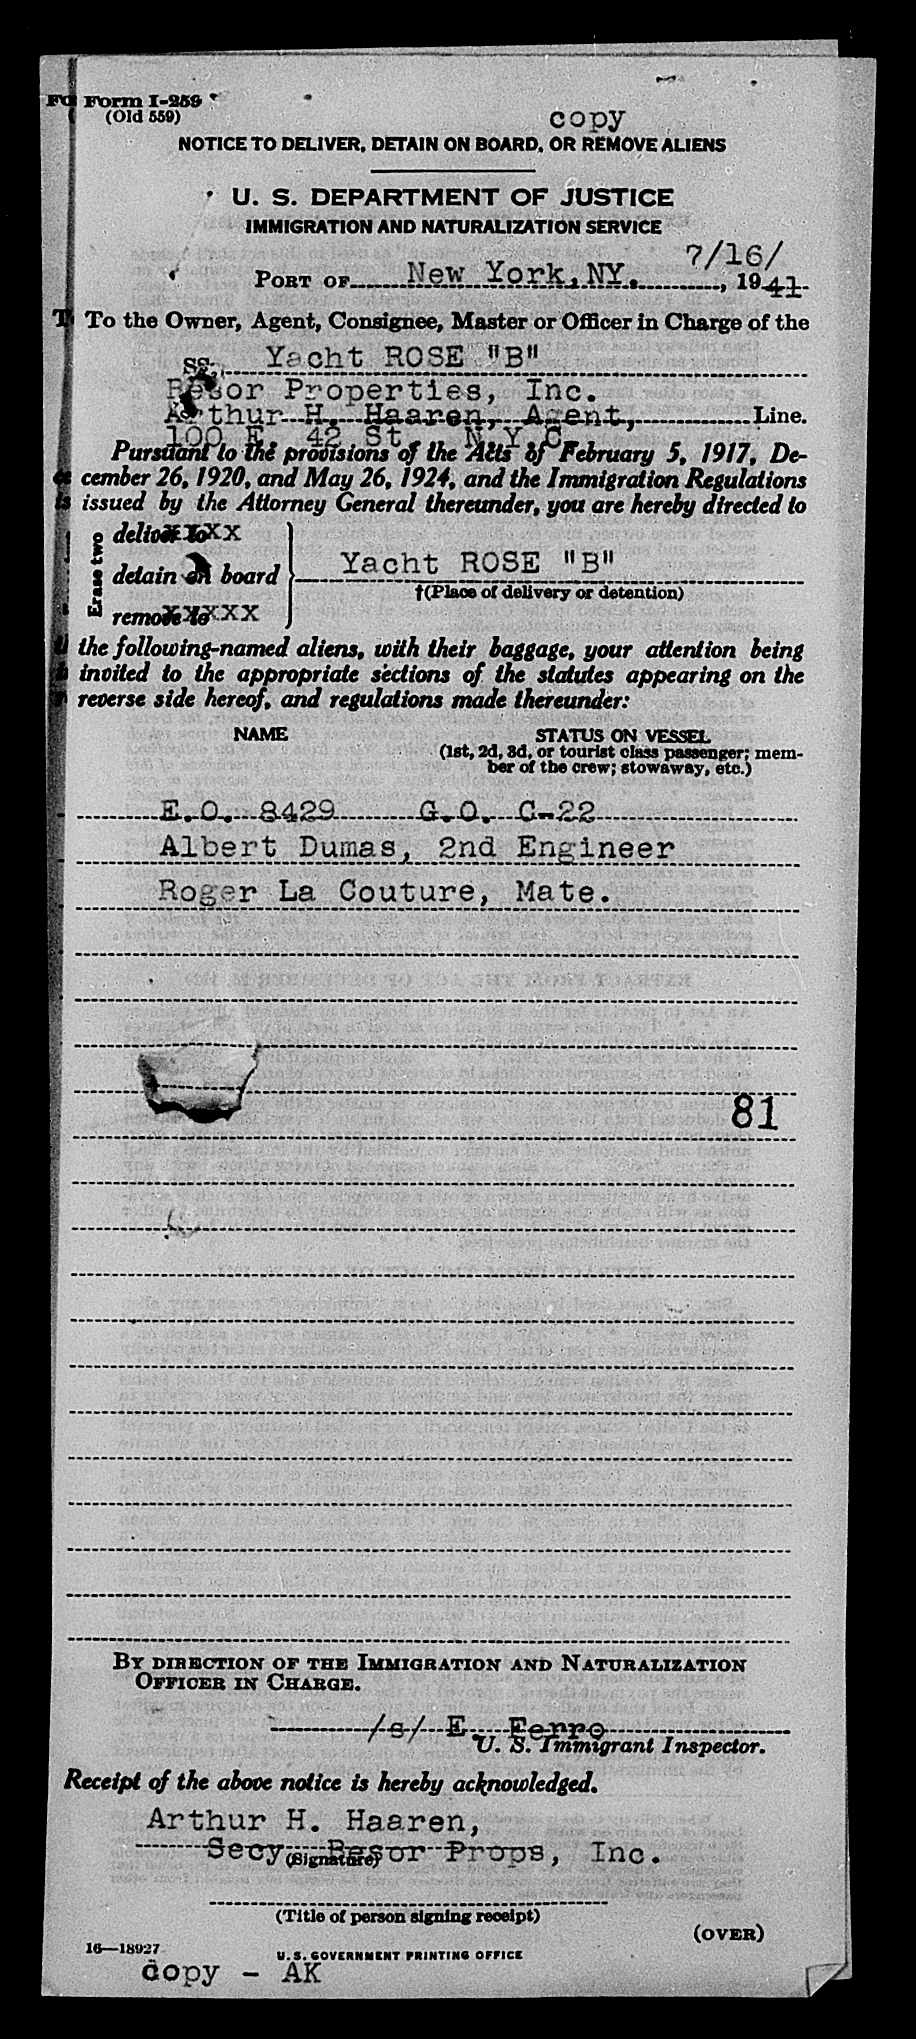 Form I-259
(Old 559)
copy
NOTICE TO DELIVER, DETAIN ON BOARD, OR REMOVE ALIENS
U. S. DEPARTMENT OF JUSTICE
IMMIGRATION AND NATURALIZATION SERVICE
7/16/
PORT OF New York, NY. , 1941
To the Owner, Agent, Consignee, Master or Officer in Charge of the
SS. Yacht ROSE "B"
Resor Properties, Inc.
Arthur H. Haaren, Agent, Line.
100 E. 42 St. N.Y.C.
Pursuant to the provisions of the Acts of February 5, 1917, De-
cember 26, 1920, and May 26, 1924, and the Immigration Regulations
issued by the Attorney General thereunder, you are hereby directed to
Erase two
deliver to xxxx
detain on board Yacht ROSE "B"
†(Place of delivery or detention)
remove to xxxxx
the following-named aliens, with their baggage, your attention being
invited to the appropriate sections of the statutes appearing on the
reverse side hereof, and regulations made thereunder:
NAME STATUS ON VESSEL
(1st, 2d, 3d, or tourist class passenger; mem-
ber of the crew; stowaway, etc.)
E.O. 8429 G.O. C-22
Albert Dumas, 2nd Engineer
Roger La Couture, Mate.
81
BY DIRECTION OF THE IMMIGRATION AND NATURALIZATION
OFFICER IN CHARGE.
/s/ E. Ferro
U. S. Immigrant Inspector.
Receipt of the above notice is hereby acknowledged.
Arthur H. Haaren,
Secy Resor Props, Inc.
(Signature)
(Title of person signing receipt)
(OVER)
16—18927 U. S. GOVERNMENT PRINTING OFFICE
copy - AK